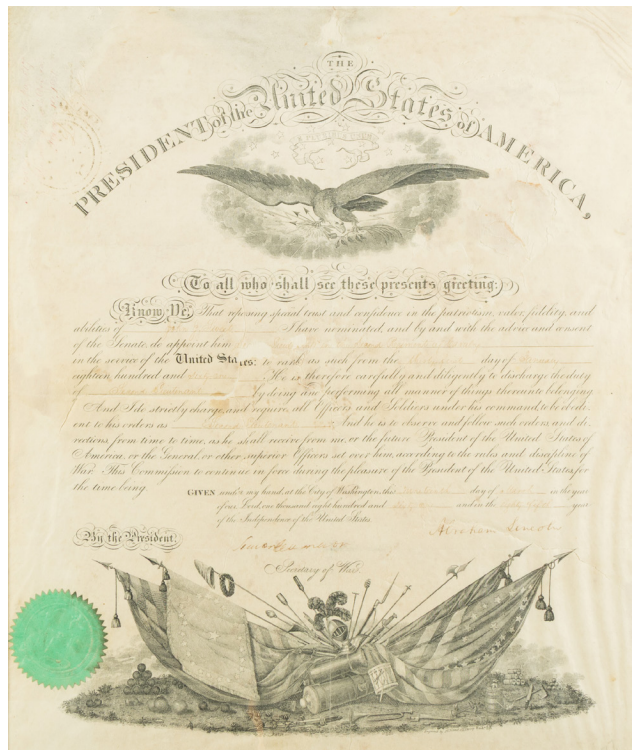 THE
PRESIDENT of the United States of AMERICA,
To all who shall see these presents greeting:
Know Ye, That reposing special trust and confidence in the patriotism, valor, fidelity, and
abilities of I have nominated, and by and with the advice and consent
of the Senate, do appoint him
in the service of the United States: to rank as such from the day of
eighteen hundred and He is therefore carefully and diligently to discharge the duty
of by doing and performing all manner of things thereunto belonging.
And I do strictly charge, and require, all Officers and Soldiers under his command, to be obedi-
ent to his orders as And he is to observe and follow such orders, and di-
rections, from time to time, as he shall receive from me, or the future President of the United States of
America, or the General, or other superior Officers set over him, according to the rules and discipline of
War. This Commission to continue in force during the pleasure of the President of the United States, for
the time being.
GIVEN under my hand, at the City of Washington, this day of in the year
of our Lord, one thousand eight hundred and and in the year
of the Independence of the United States.
Abraham Lincoln
By the President:
Secretary of War.